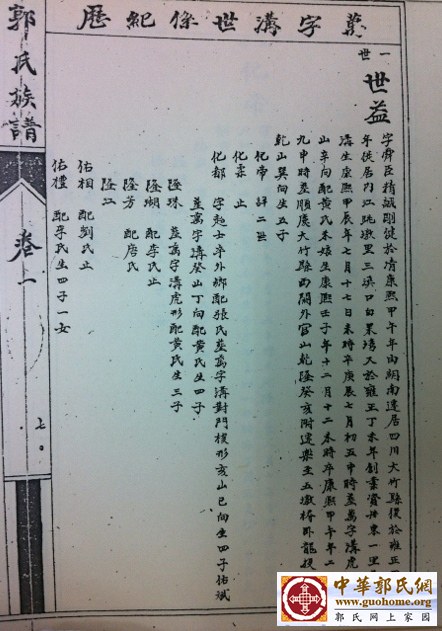 萬字溝世係紀歷
一世
世益
字舜臣精誠剛健於清康熙甲午年由湖南遷居四川大竹縣後於雍正
年徙居內江跳墩里三溪口白果塆又於雍正丁未年創業資州東一里
溝生康熙甲辰年七月十七日未時卒庚辰七月初五申時葬萬字溝虎
山辛向配黃氏本娘生康熙壬子年十二月十二未時卒康熙甲午年二
九申時葬順慶大竹縣西關外官山乾隆癸亥附遷樂至五墩橋卧龍坡
乾山巽向生五子
化帝 詳二世
化霖 止
化都 字超士卒外鄉配張氏葬萬字溝對門梭形亥山巳向生四子佑斌
葬萬字溝癸山丁向配黃氏生四子
隆珠 葬萬字溝虎形配黃氏生三子
隆瑚 配李氏止
隆芳 配唐氏
隆江
佑相 配劉氏止
佑禮 配李氏生四子一女
郭氏族譜
卷一
七
中華郭氏網
www.guohome.org
郭氏网上家园